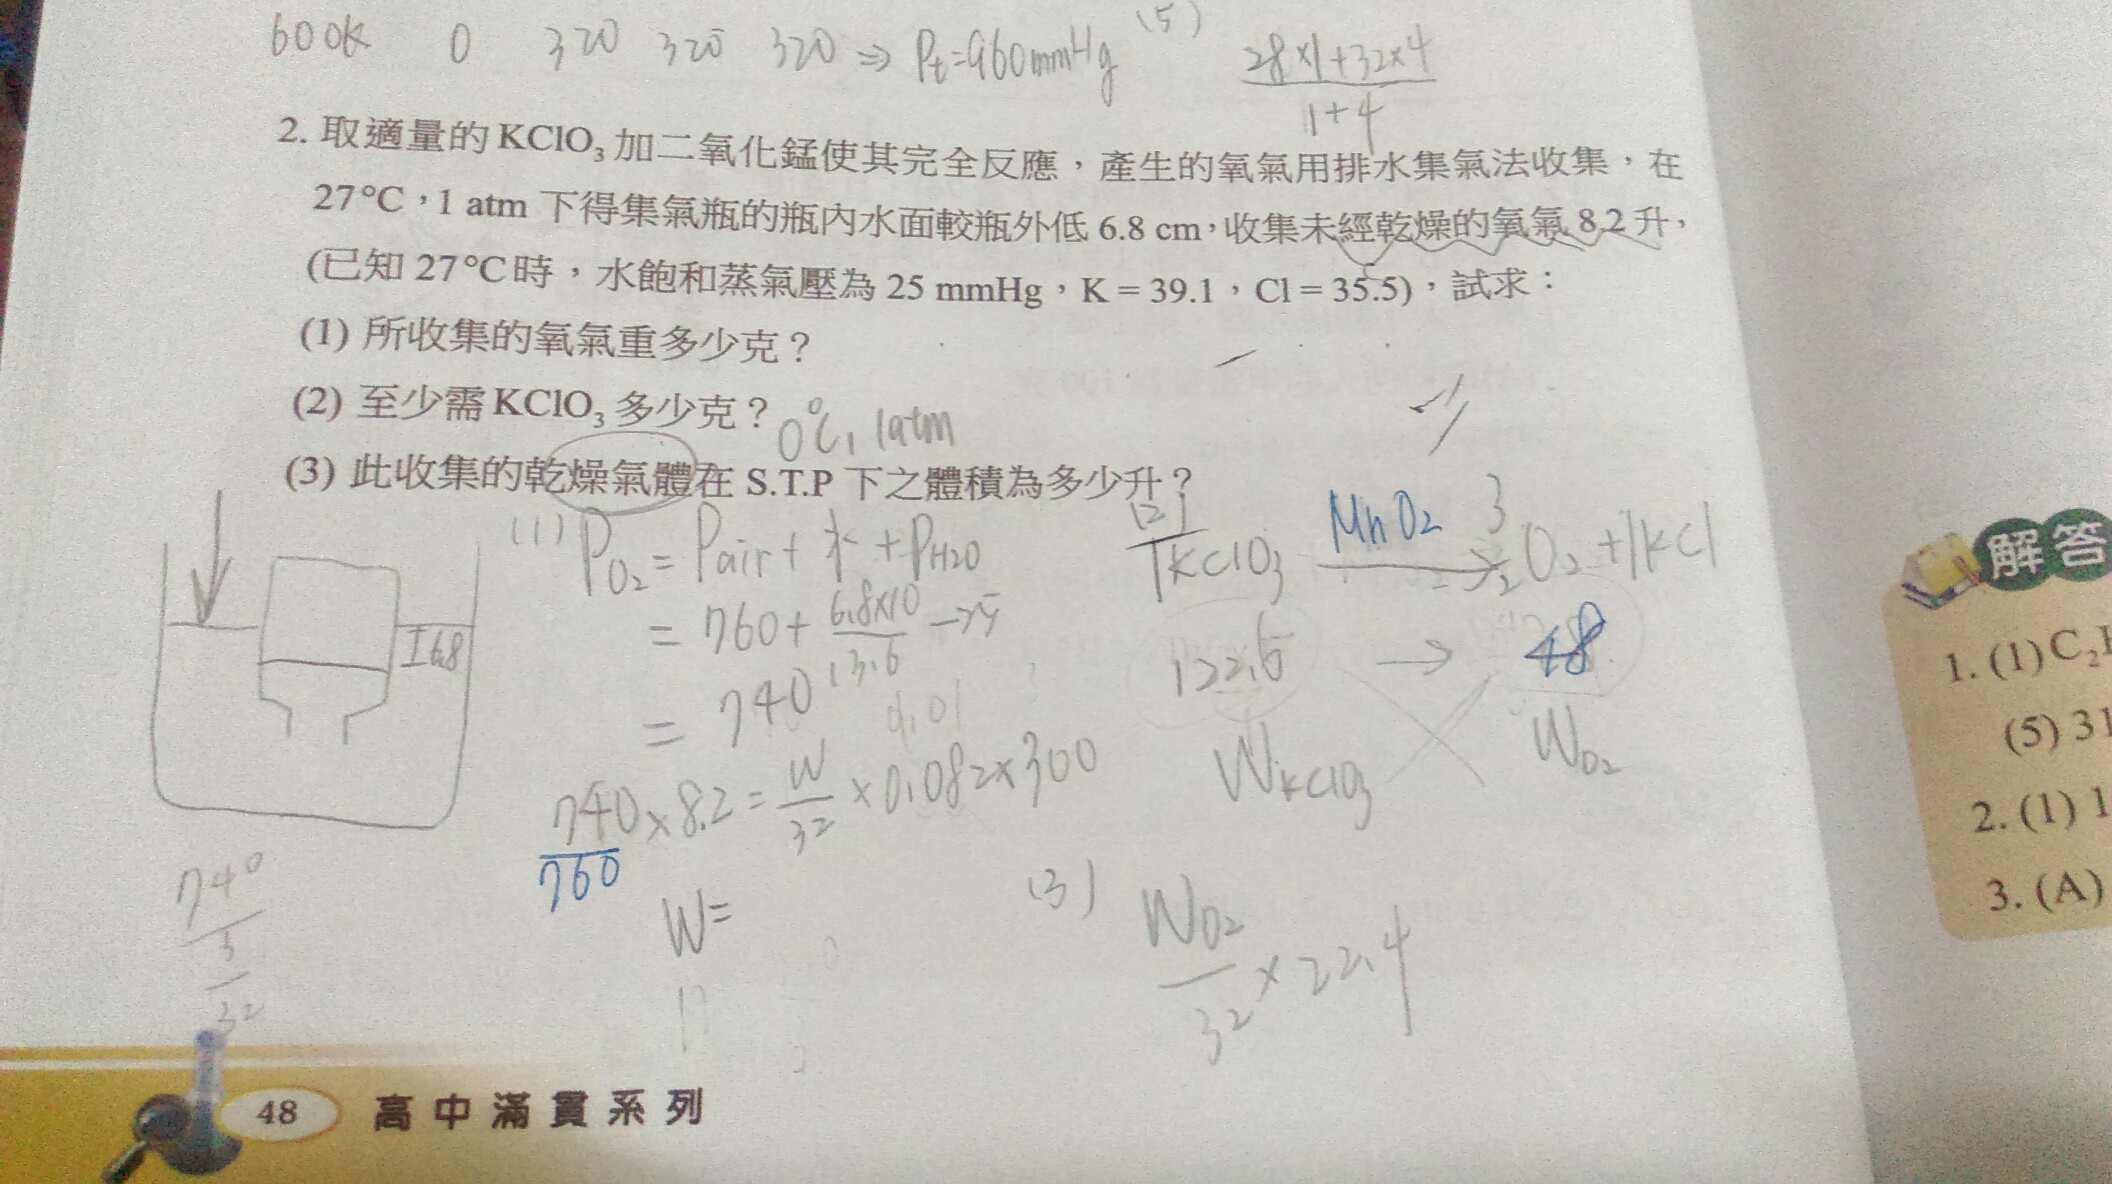 600K 0 320 320 320 ⇒ Pt=960mmHg (5) 28×1+32×4
1+4
2. 取適量的 KClO₃ 加二氧化錳使其完全反應，產生的氧氣用排水集氣法收集，在
27°C，1 atm 下得集氣瓶的瓶內水面較瓶外低 6.8 cm，收集未經乾燥的氧氣 8.2 升，
(已知 27°C 時，水飽和蒸氣壓為 25 mmHg，K = 39.1，Cl = 35.5)，試求：
(1) 所收集的氧氣重多少克？
(2) 至少需 KClO₃ 多少克？
0°C, 1atm
(3) 此收集的乾燥氣體在 S.T.P 下之體積為多少升？
(1) PO₂ = Pair + 水 + PH₂O
= 760 + 6.8×10 -25
13.6
= 740
740 × 8.2 = W × 0.082 × 300
760 32
W=
6.8
740
32
(2)
1KClO₃ MnO₂ → 3 O₂ + 1KCl
2
122.6 → 48
WKClO₃ WO₂
(3) WO₂ × 22.4
32
解答
1. (1) C₂
(5) 31
2. (1) 1
3. (A)
48 高中滿貫系列